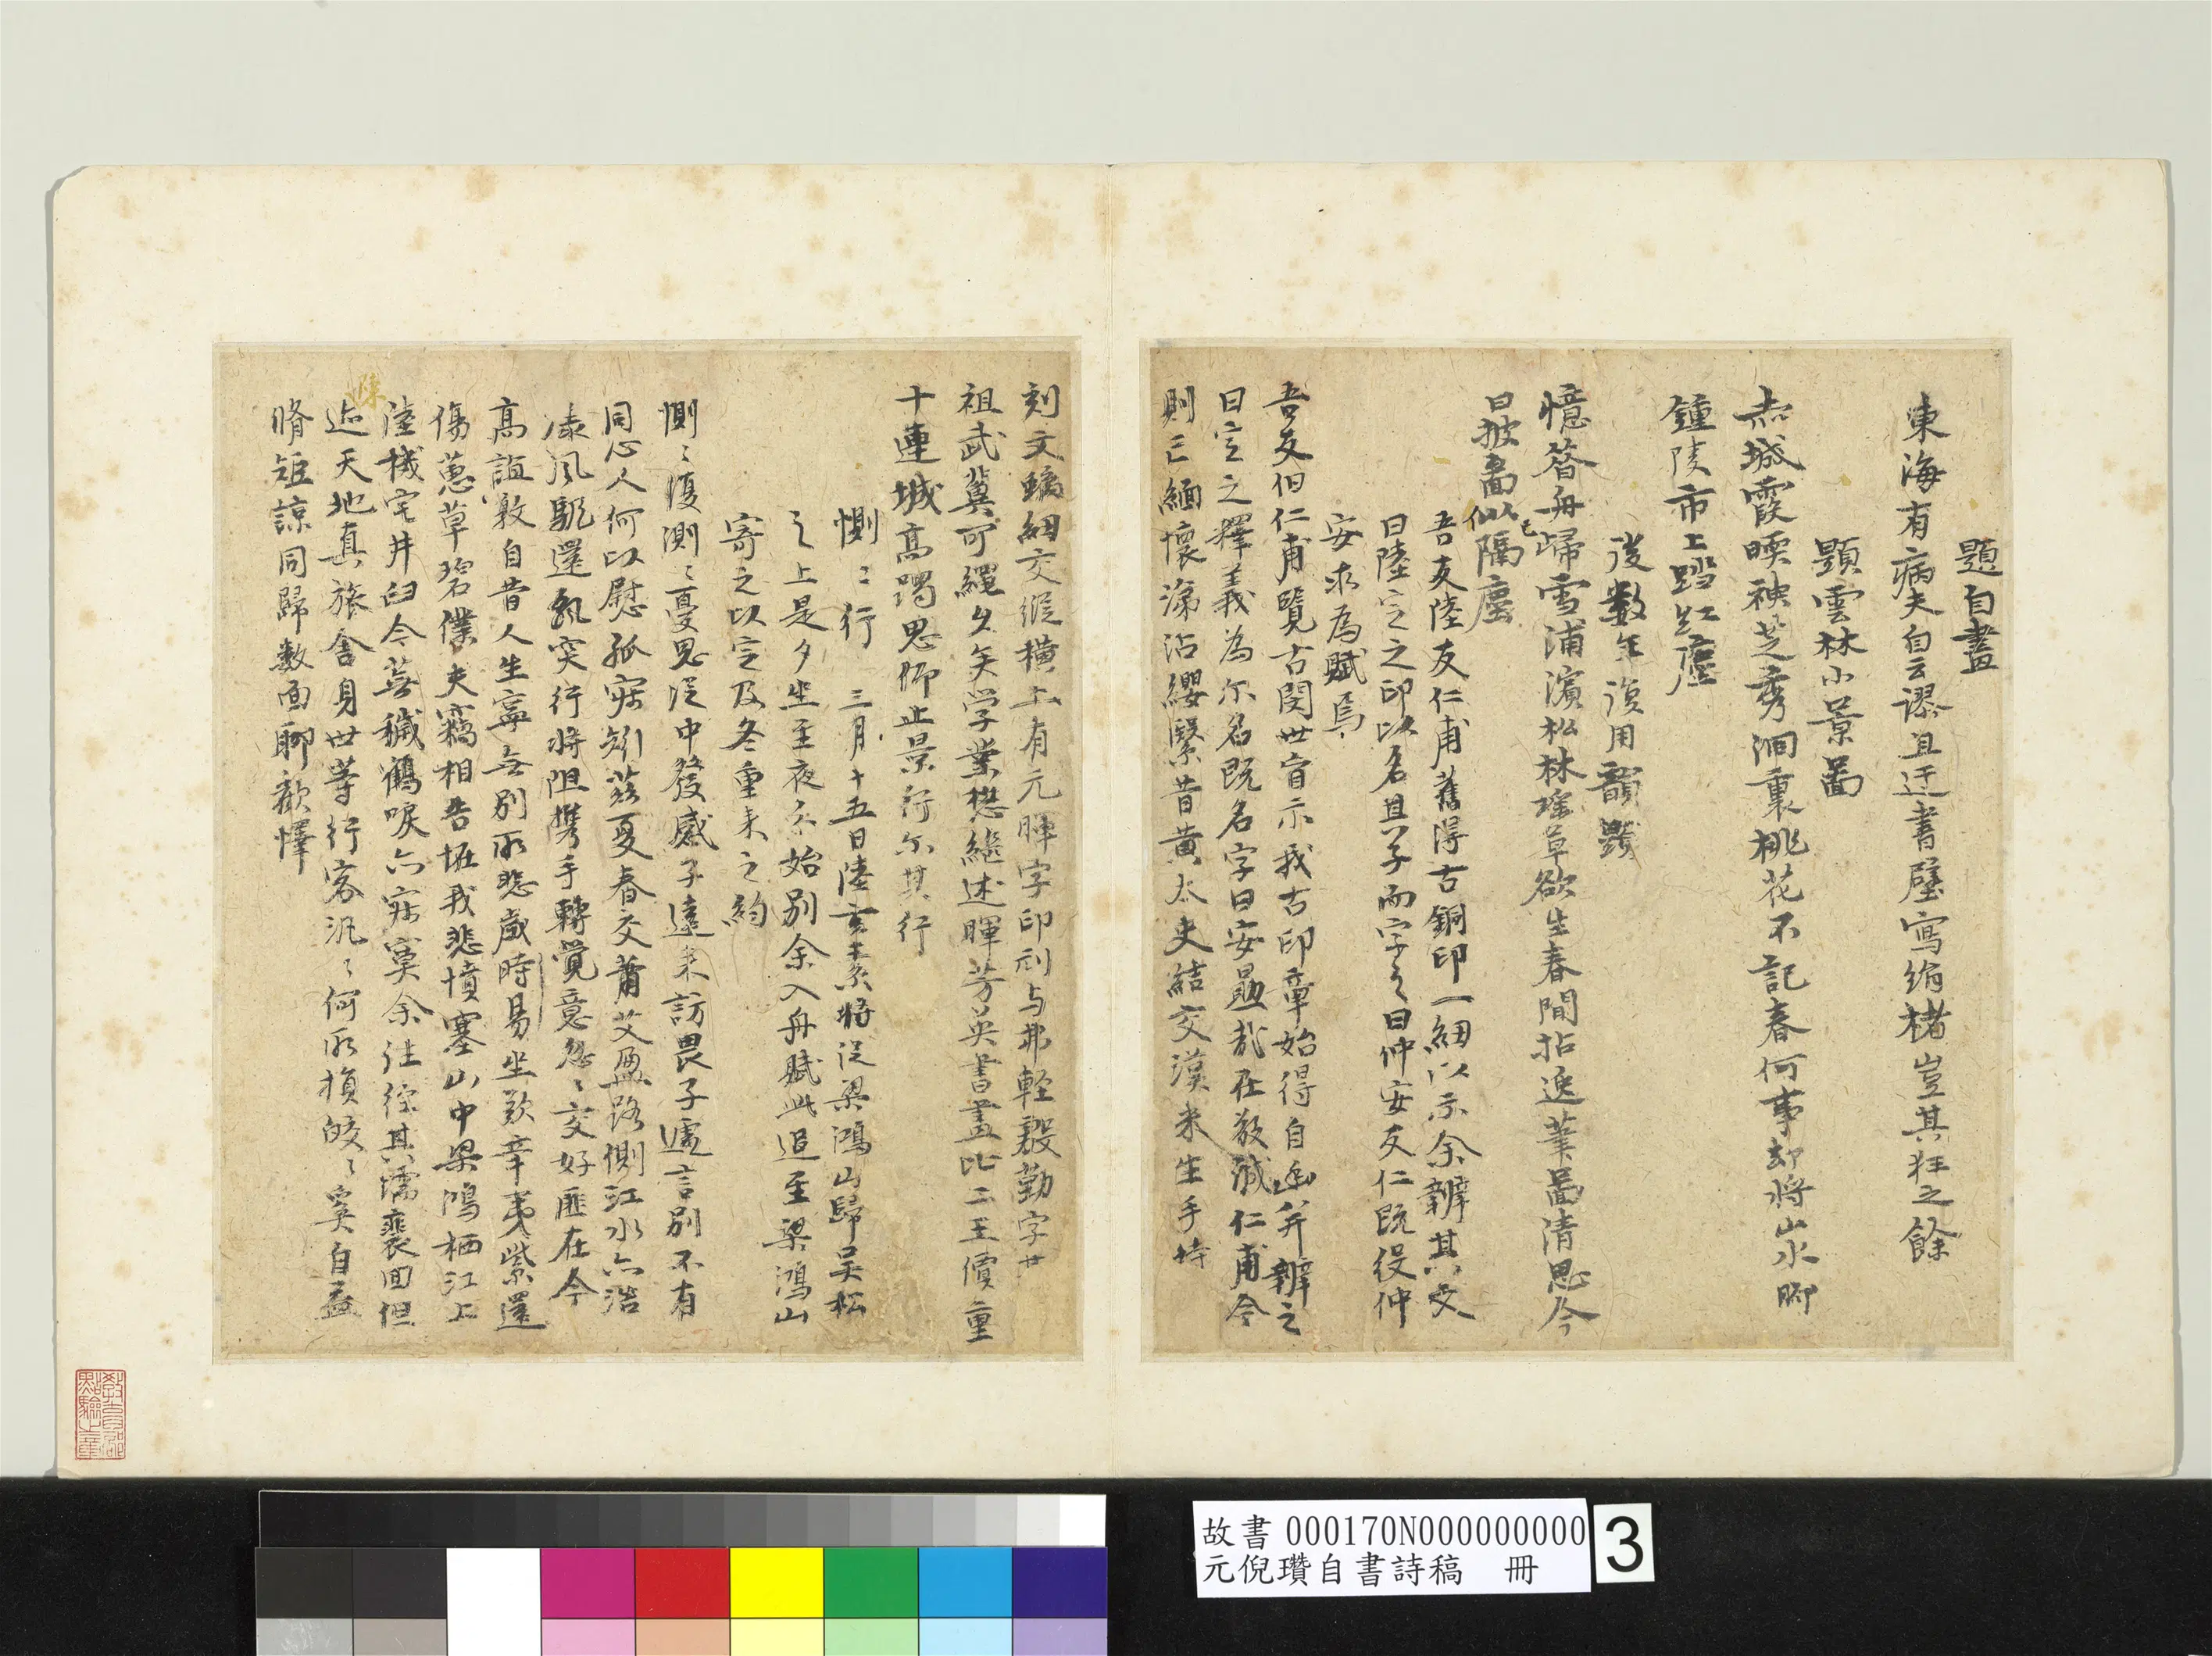 題自畫
東海有病夫自云謬且迂書壁寫絹楮豈其狂之餘
題雲林小景畵
赤城霞暎神芝秀洞裏桃花不記春何事却將山水脚
鍾陵市上踏紅塵
後數年復用韻題
憶答舟歸雪浦濱松林瑤草欲生春閒拈逸筆畵清思今
日披畵似隔塵
吾友陸友仁甫舊得古銅印一紐以示余辨其文
曰陸定之之印以名且子而字之曰仲安友仁既役仲
安求為賦焉
吾友伯仁甫覽古閔世盲示我古印章始得自幽并辦之
曰定之釋義為尔名既名字曰安勗哉在敬誠仁甫今
則亡緬懷涕沾纓繄昔黃太史結交漢米生手持
刻文螭紐交縱橫上有元暉字印刓与弗輕毅勤字廿
祖武冀可繩久矣学業懋繼述暉芳英書畫比二王價重
十連城高躅思仰止景行尔其行
惻〻行 三月十五日陸玄素將從梁鴻山歸吴松
之上是夕坐至夜分始別余入舟賦此追至梁鴻山
寄之以定及冬重來之約
惻〻復測〻憂思從中發感子遠来訪畏子遽言別不有
同心人何以慰孤寂矧茲夏春交蕭艾盈路側江水亦浩
漾風颿還飄突行將阻攜手轉覺意忽〻交好匪在今
高誼敦自昔人生寧無別所悲歲時易坐歎辛夷紫還
傷蕙草碧僕夫竊相告拒我悲憤塞山中梁鴻栖江上
陸機宅井臼今蕪穢鶴唳亦寂寞余往徑其濡裵回但
陳
迹天地真旅舍身世等行客汎〻何所損皎〻奚自益
脩短諒同歸數面聊歡懌
故書 000170N000000000
元倪瓚自書詩稿 冊
3